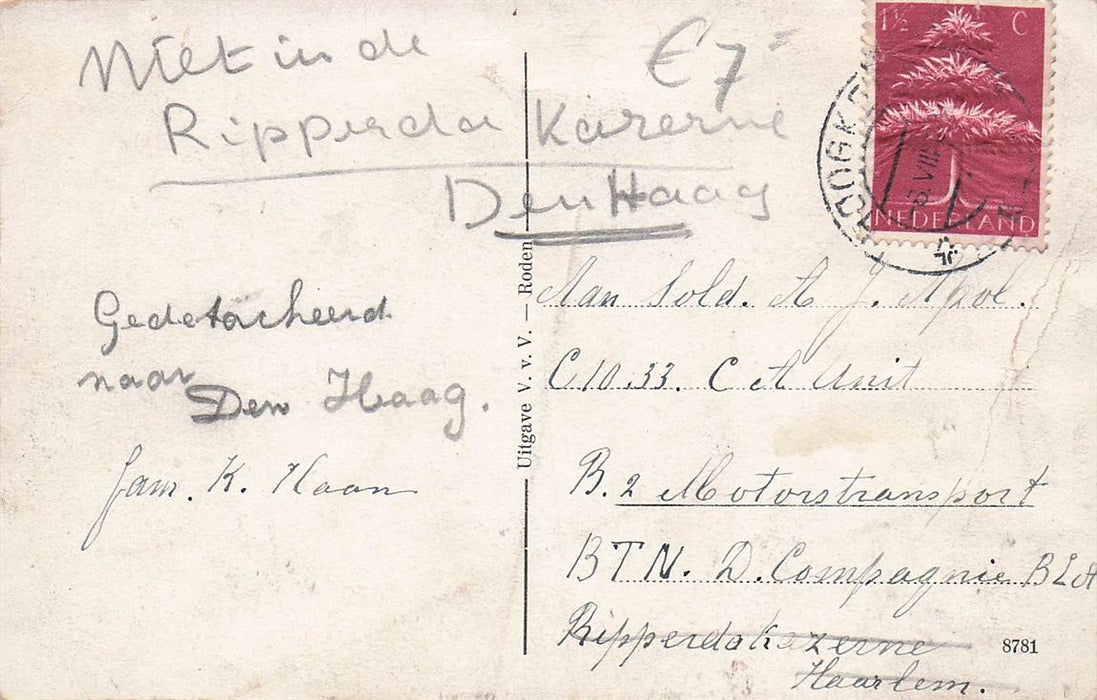 Niet in de
Ripperda Kazerne
Den Haag
€ 7=
1½ C
NEDERLAND
VIII
Gedetacheerd
naar
Den Haag.
Fam. K. Haan
Uitgave V. v. V. — Roden
Aan Sold. A J. Apol.
C10.33. C A Unit
B.2 Motorstransport
BTN. D. Compagnie BLA
Ripperdakazerne
Haarlem.
8781